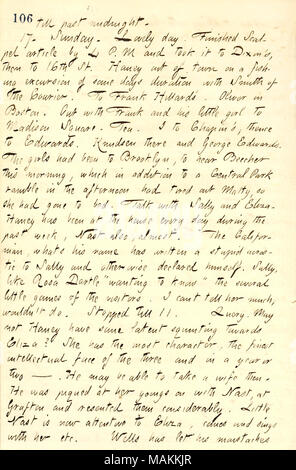 106 till past midnight.
17. Sunday. Lovely day. Finished Scal-
pel article by 4 P. M and took it to Dixon's,
then to 16th St. Haney out of town on a fish-
ing excursion of some days duration with Smith of
the Courier. To Frank Hillards. Oliver in
Boston. Out with Frank and his little girl to
Madison Square. Tea. I to Chapin's, thence
to Edwards. Knudsen there and George Edwards.
The girls had been to Brooklyn, to hear Beecher
this morning, which in addition to a Central Park
ramble in the afternoon had tired out Matty, so
she had gone to bed. Talk with Sally and Eliza.
Haney has been at the house every day during the
past week, Nast also, almost. The Califor-
nian, what's his name has written a stupid acros-
tic to Sally and otherwise declared himself. Sally,
like Rosa Dartle "wanting to know" the several
little games of the visitors. I can't tell her much,
wouldn't do. Stopped till 11. Query. May
not Haney have some latent squinting towards
Eliza? She has the most character, the finest
intellectual face of the three and in a year or
two —. He may be able to take a wife then.
He was piqued at her goings on with Nast, at
Grafton and resented them considerably. Little
Nast is now attentive to Eliza, dances and sings
with her etc. Wells has let his mustaches
alamy
Image ID: MAKKJR
www.alamy.com